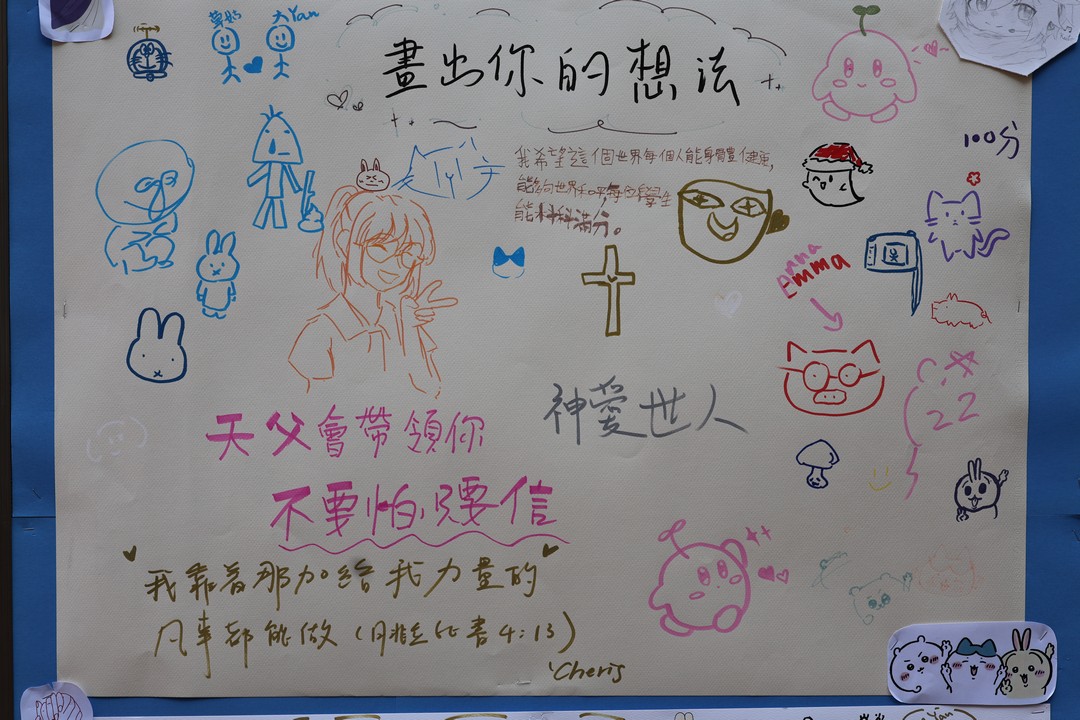 大Yan
畫出你的想法
100分
我希望這個世界每個人能身體健康,
能夠世界和平,每个學生
能科科滿分。
Emma
Emma
22
神愛世人
天父會帶領你
不要怕,只要信
我靠著那加給我力量的
凡事都能做(腓立比書4:13)
Cheris